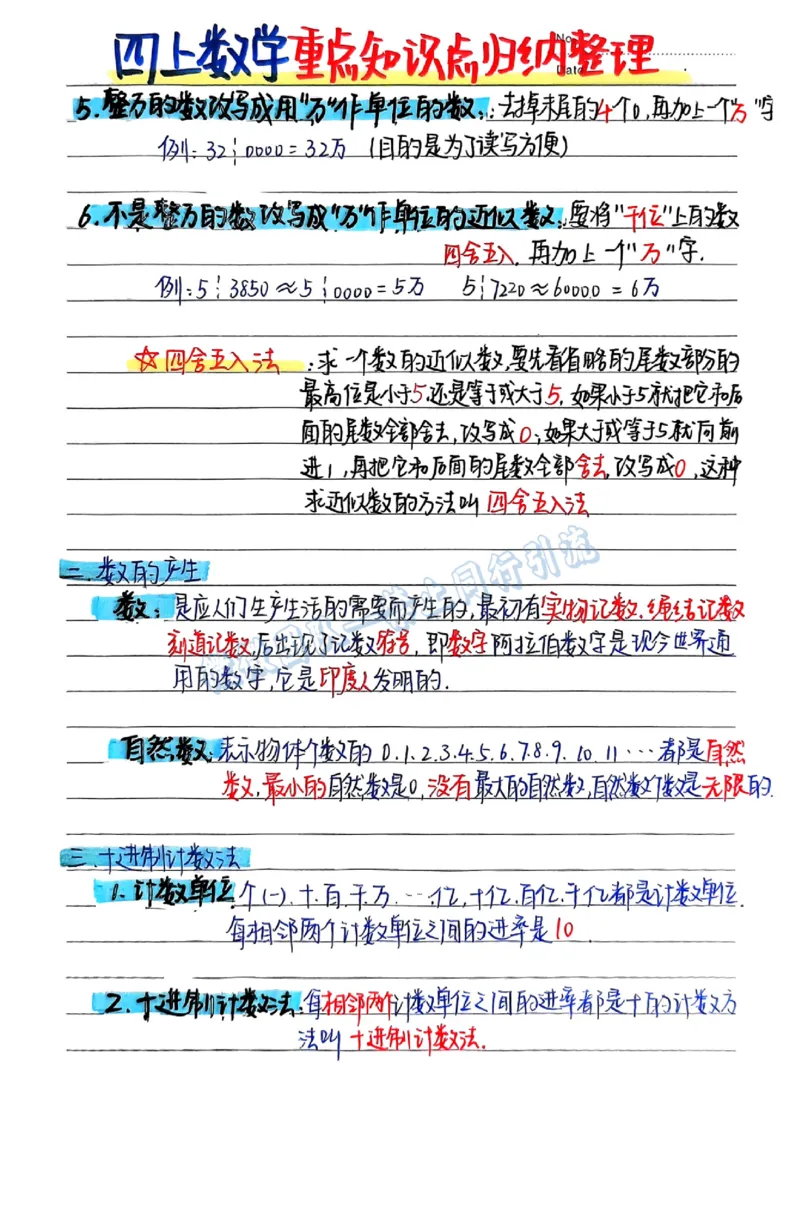 四上数学重点知识点归纳整理
No.
Date
5.整万的数改写成用"万"作单位的数:去掉末尾的4个0,再加上一个"万"字
例:32┆0000=32万 (目的是为了读写方便)
6.不是整万的数改写成"万"作单位的近似数:要将"千位"上的数
四舍五入,再加上一个"万"字.
例:5┆3850≈5┆0000=5万 5┆7220≈60000=6万
☆四舍五入法:求一个数的近似数,要先看省略的尾数部分的
最高位是小于5,还是等于或大于5,如果小于5就把它和后
面的尾数全部舍去,改写成0;如果大于或等于5就向前
进1,再把它和后面的尾数全部舍去,改写成0,这种
求近似数的方法叫四舍五入法
二.数的产生
数:是应人们生产生活的需要而产生的,最初有实物记数.绳结记数
刻道记数,后出现了记数符号,即数字阿拉伯数字是现今世界通
用的数字,它是印度人发明的.
自然数:表示物体个数的0.1.2.3.4.5.6.7.8.9.10.11…都是自然
数,最小的自然数是0,没有最大的自然数,自然数个数是无限的.
三.十进制计数法
1.计数单位 个(一).十.百.千.万.…亿,十亿.百亿.千亿都是计数单位.
每相邻两个计数单位之间的进率是10.
2.十进制计数法:每相邻两个计数单位之间的进率都是十的计数方
法叫十进制计数法.